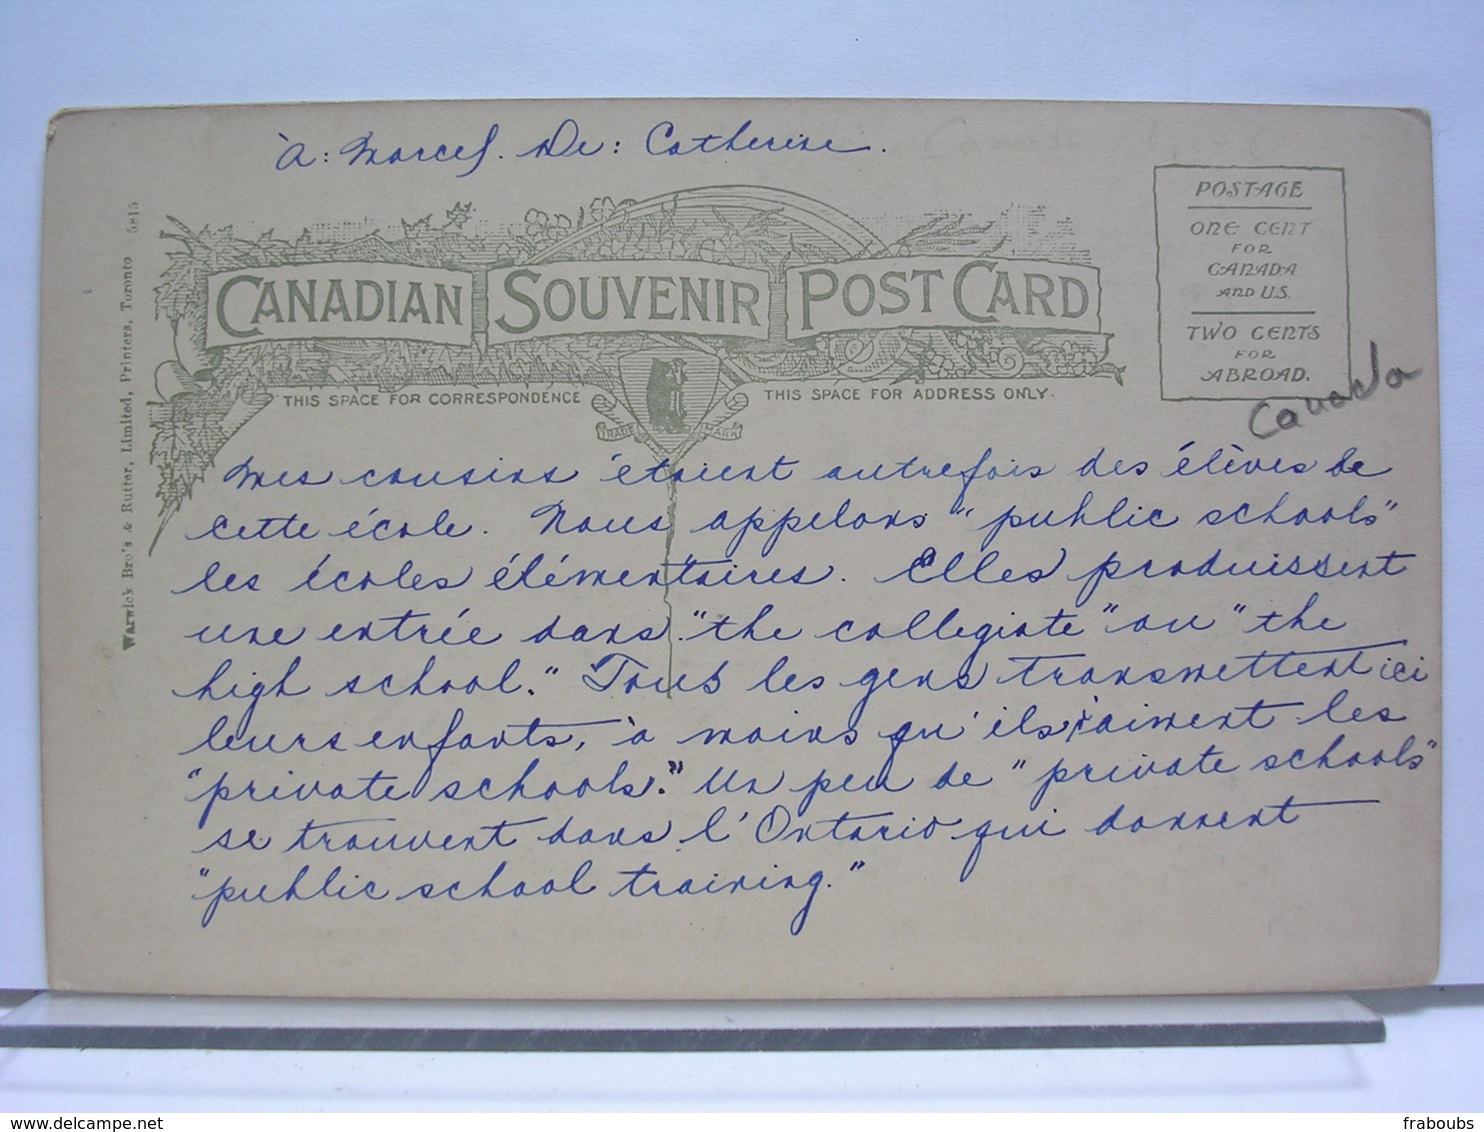 à : Marcel. De : Catherine.
Warwick Bro's & Rutter, Limited, Printers, Toronto 5815
CANADIAN SOUVENIR POST CARD
THIS SPACE FOR CORRESPONDENCE
THIS SPACE FOR ADDRESS ONLY.
TRADE MARK
POSTAGE
ONE CENT
FOR
CANADA
AND U.S.
TWO CENTS
FOR
ABROAD.
Canada
Mes cousins étaient autrefois des élèves de
cette école. Nous appelons "public schools"
les écoles élémentaires. Elles produissent
une entrée dans "the collegiate" ou "the
high school." Tous les gens transmettent ici
leurs enfants, à moins qu'ils aiment les
"private schools." Un peu de "private schools"
se trouvent dans l'Ontario qui donnent
"public school training."
Delcampe.net
fraboubs